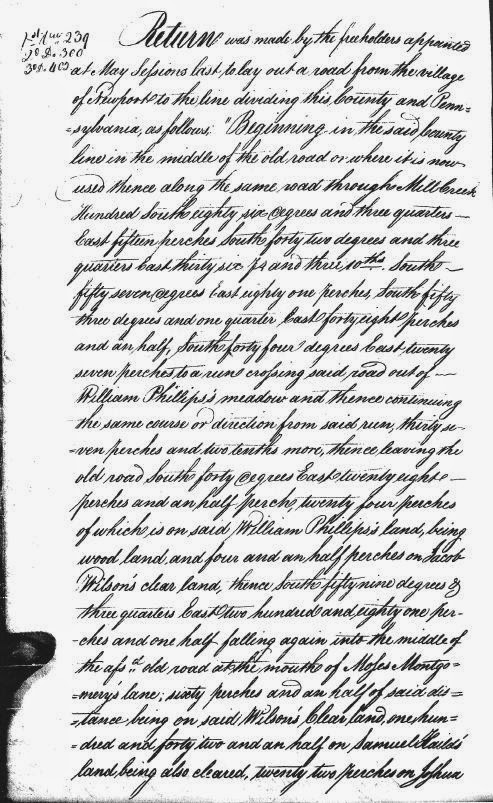 1st Aur. 239
2d Do. 300
3d Do. 402
Return was made by the freeholders appointed
at May Sessions last, to lay out a road from the village
of Newport to the line dividing this County and Penn=
=sylvania, as follows. "Beginning in the said County
line in the middle of the old road or where it is now
used thence along the same road through Mill Creek
Hundred South eighty six degrees and three quarters —
East fifteen perches South forty two degrees and three
quarters East thirty six ps. and three 10ths. South —
fifty seven degrees East eighty one perches, South fifty
three degrees and one quarter East forty eight perches
and an half, South forty four degrees East twenty
seven perches to a run crossing said road out of —
William Phillips's meadow and thence continuing
the same course or direction from said run, thirty se=
=ven perches and two tenths more, thence leaving the
old road South forty degrees East twenty eight —
perches and an half perch, twenty four perches
of which is on said William Phillips's land, being
wood land, and four and an half perches on Jacob
Wilson's clear land, thence South fifty nine degrees &
three quarters East two hundred and eighty one per-
-ches and one half falling again into the middle of
the afsd. old road at the mouth of Moses Montgo=
=mery's lane; sixty perches and an half of said dis=
=tance being on said Wilson's Clear land, one hun=
=dred and forty two and an half on Samuel
land, being also cleared, twenty two perches on Joshua